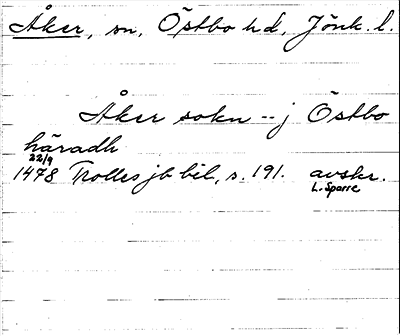 Åker, sn, Östbo hd, Jönk. l.
Åker sokn -- j Östbo
häradh
22/9
1478 Trolles jb bil, s. 191. avskr.
L. Sparre